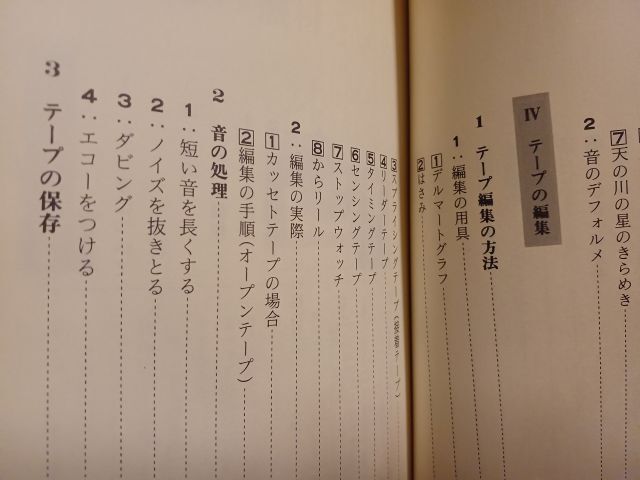 7 天の川の星のきらめき
2：音のデフォルメ
IV テープの編集
1 テープ編集の方法
1：編集の用具
1 デルマートグラフ
2 はさみ
3 スプライシングテープ(接着テープ)
4 リーダーテープ
5 タイミングテープ
6 センシングテープ
7 ストップウォッチ
8 からリール
2：編集の実際
1 カッセトテープの場合
2 編集の手順(オープンテープ)
2 音の処理
1：短い音を長くする
2：ノイズを抜きとる
3：ダビング
4：エコーをつける
3 テープの保存